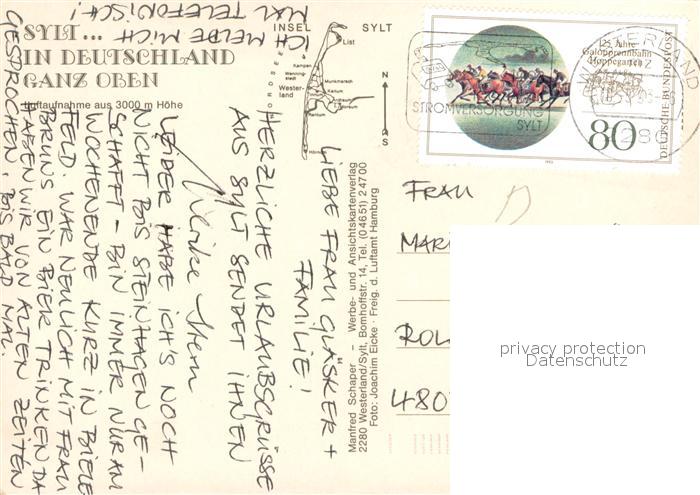 SYLT...
IN DEUTSCHLAND
GANZ OBEN
Luftaufnahme aus 3000 m Höhe
INSEL SYLT
List
Kampen
Westerland
Munkmarsch
Keitum
Rantum
Hörnum
N
S
Manfred Schaper - Werbe- und Ansichtskartenverlag
2280 Westerland/Sylt, Bomhoffstr. 14, Tel. (04651) 24700
Foto: Joachim Eicke - Freig. d. Luftamt Hamburg
LIEBE FRAU GLÄSKER +
FAMILIE!
HERZLICHE URLAUBSGRÜSSE
AUS SYLT SENDET IHNEN
LEIDER HABE ICH'S NOCH
NICHT BIS STEINHAGEN GE-
SCHAFFT - BIN IMMER NUR AM
WOCHENENDE KURZ IN BIELE
FELD. WAR NEULICH MIT FRAU
BRUNS EIN BIER TRINKEN DA
HABEN WIR VON ALTEN ZEITEN
GESPROCHEN. BIS BALD MAL.
ICH MELDE MICH
MAL TELEFONISCH!
125 Jahre
Galopprennbahn
Hoppegarten
80
DEUTSCHE BUNDESPOST
STROMVERSORGUNG
SYLT
WESTERLAND
FRAU
MAR
ROL
480
privacy protection
Datenschutz